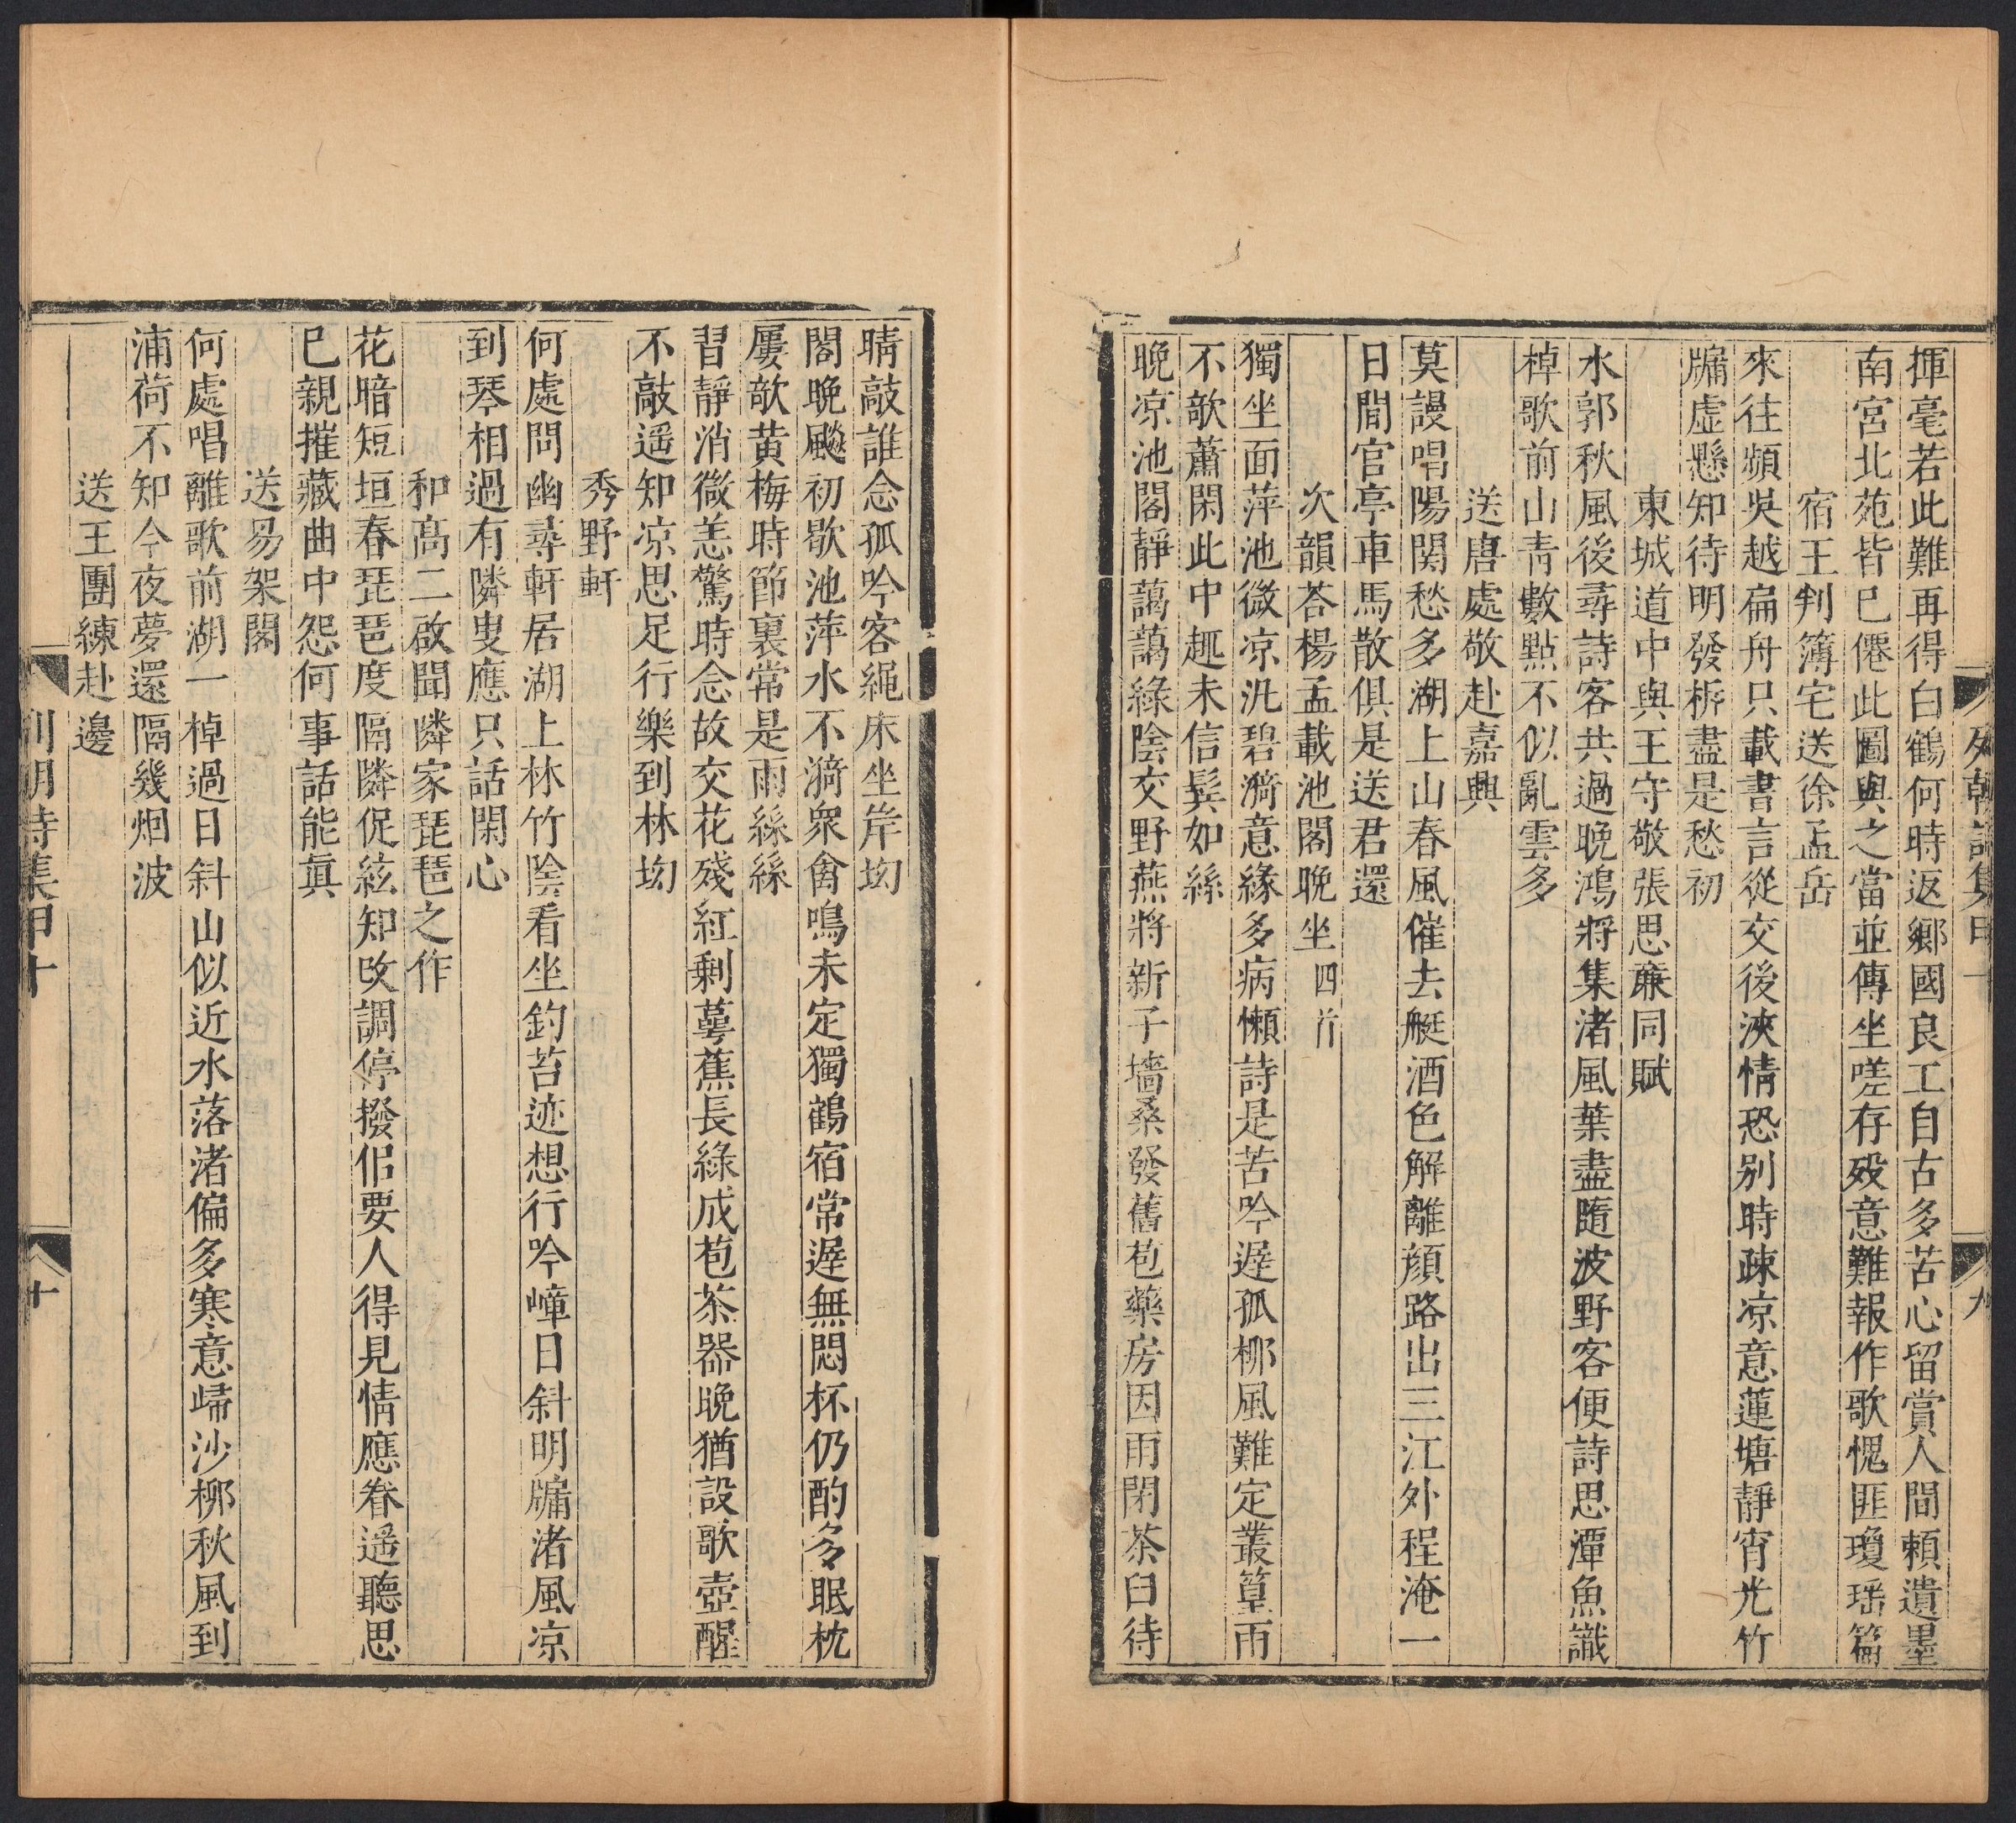 列朝詩集甲十
九
揮毫若此難再得白鶴何時返鄉國良工自古多苦心留賞人間賴遺墨
南宮北苑皆已僊此圖與之當並傳坐嗟存歿意難報作歌愧匪瓊瑤篇
宿王判簿宅送徐孟岳
來往頻吳越扁舟只載書言從交後浹情恐别時疎凉意蓮塘靜宵光竹
牖虛懸知待明發柝盡是愁初
東城道中與王守敬張思亷同賦
水郭秋風後尋詩客共過晚鴻將集渚風葉盡隨波野客便詩思潭魚識
棹歌前山青數點不似亂雲多
送唐處敬赴嘉興
莫謾唱陽関愁多湖上山春風催去艇酒色解離顔路出三江外程淹一
日間官亭車馬散俱是送君還
次韻荅楊孟載池閣晚坐四首
獨坐面萍池微凉汎碧漪意緣多病懶詩是苦吟遲孤柳風難定叢篁雨
不欹蕭閑此中趣未信鬂如絲
晚凉池閣靜藹藹綠陰交野燕將新子墻桑發舊苞藥房因雨閉茶臼待
晴敲誰念孤吟客繩床坐岸坳
閣晚颸初歇池萍水不漪衆禽鳴未定獨鶴宿常遲無悶杯仍酌多眠枕
屢欹黄梅時節裏常是雨絲絲
習靜消微恙驚時念故交花殘紅剩蕚蕉長綠成苞茶器晚猶設歌壺醒
不敲遥知凉思足行樂到林坳
秀野軒
何處問幽尋軒居湖上林竹陰看坐釣苔迹想行吟嶂日斜明牖渚風凉
到琴相過有隣叟應只話閑心
和高二啟聞隣家琵琶之作
花暗短垣春琵琶度隔隣促絃知改調停撥佀要人得見情應眷遥聽思
已親摧藏曲中怨何事話能眞
送易架閣
何處唱離歌前湖一棹過日斜山似近水落渚偏多寒意歸沙柳秋風到
浦荷不知今夜夢還隔幾烟波
送王團練赴邊
列朝詩集甲十
十